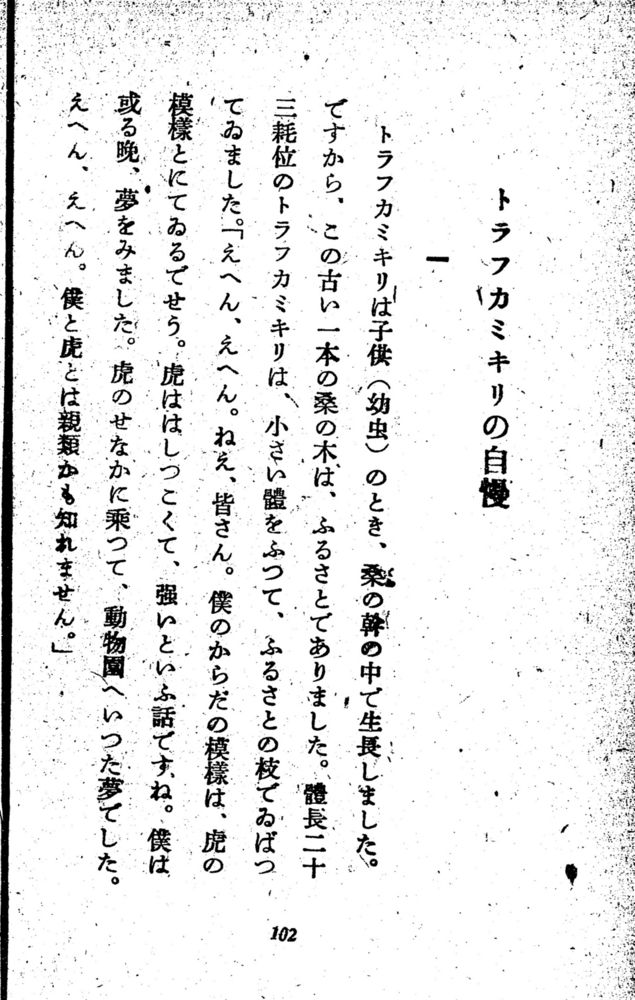 トラフカミキリの自慢
一
トラフカミキリは子供（幼虫）のとき、桑の幹の中で生長しました。
ですから、この古い一本の桑の木は、ふるさとでありました。體長二十
三粍位のトラフカミキリは、小さい體をふつて、ふるさとの枝でゐばつ
てゐました。「えへん、えへん。ねえ、皆さん。僕のからだの模様は、虎の
模樣とにてゐるでせう。虎ははしつこくて、强いといふ話ですね。僕は
或る晩、夢をみました。虎のせなかに乘つて、動物園へいつた夢でした。
えへん、えへん。僕と虎とは親類かも知れません。」
102